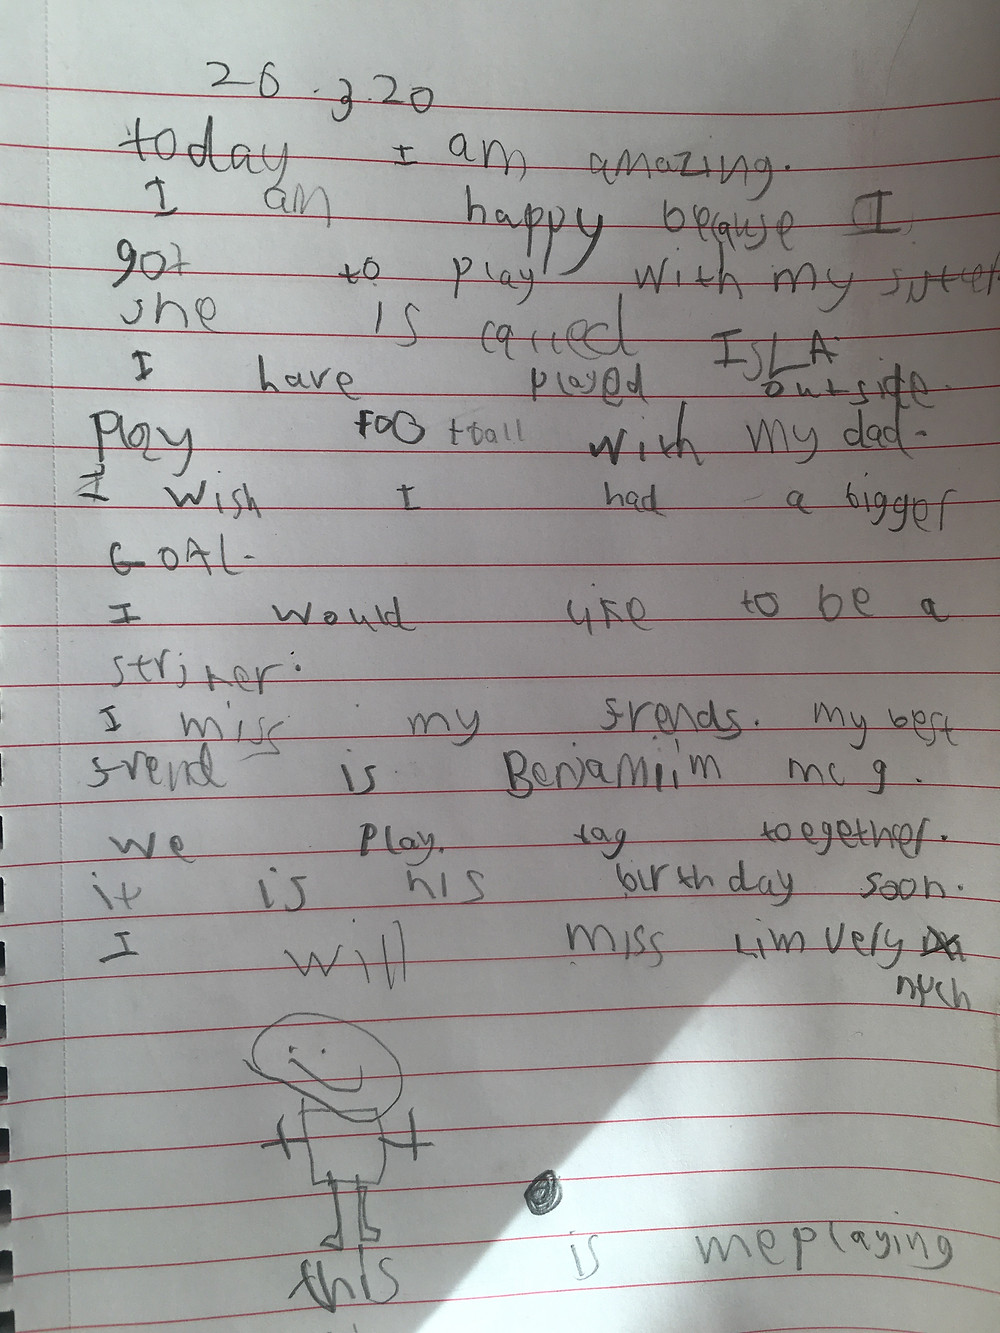 26.3.20
today I am amazing.
I am happy because I
got to play with my sister
she is called ISLA
I have played outside.
Play FOOtball with my dad.
I wish I had a bigger
GOAL.
I would like to be a
striker.
I miss my frends. my best
frend is Benjamiim mc g.
we play. tag toegether.
it is his birthday soon.
I will miss him very
much
this is me playing